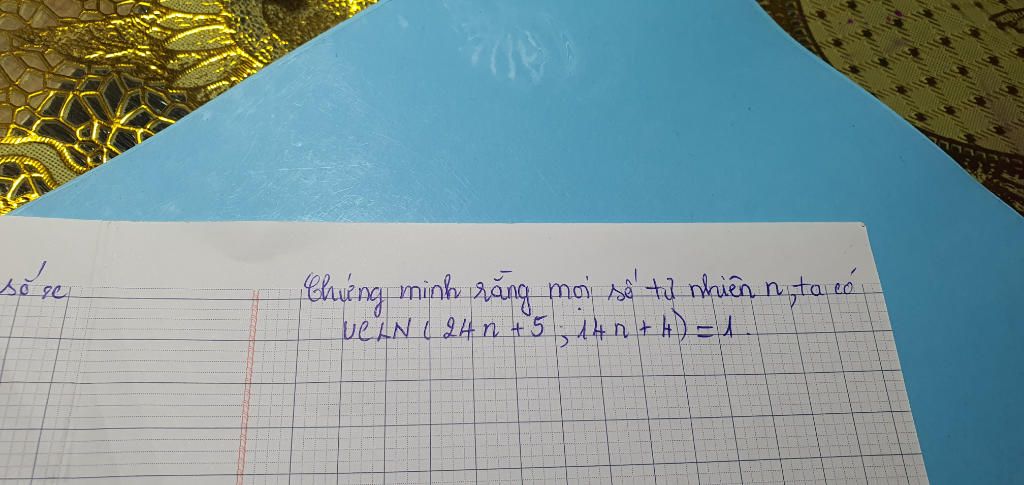 số se
Chứng minh rằng mọi số tự nhiên n, ta có
ƯCLN ( 24n + 5 ; 14n + 4 ) = 1.